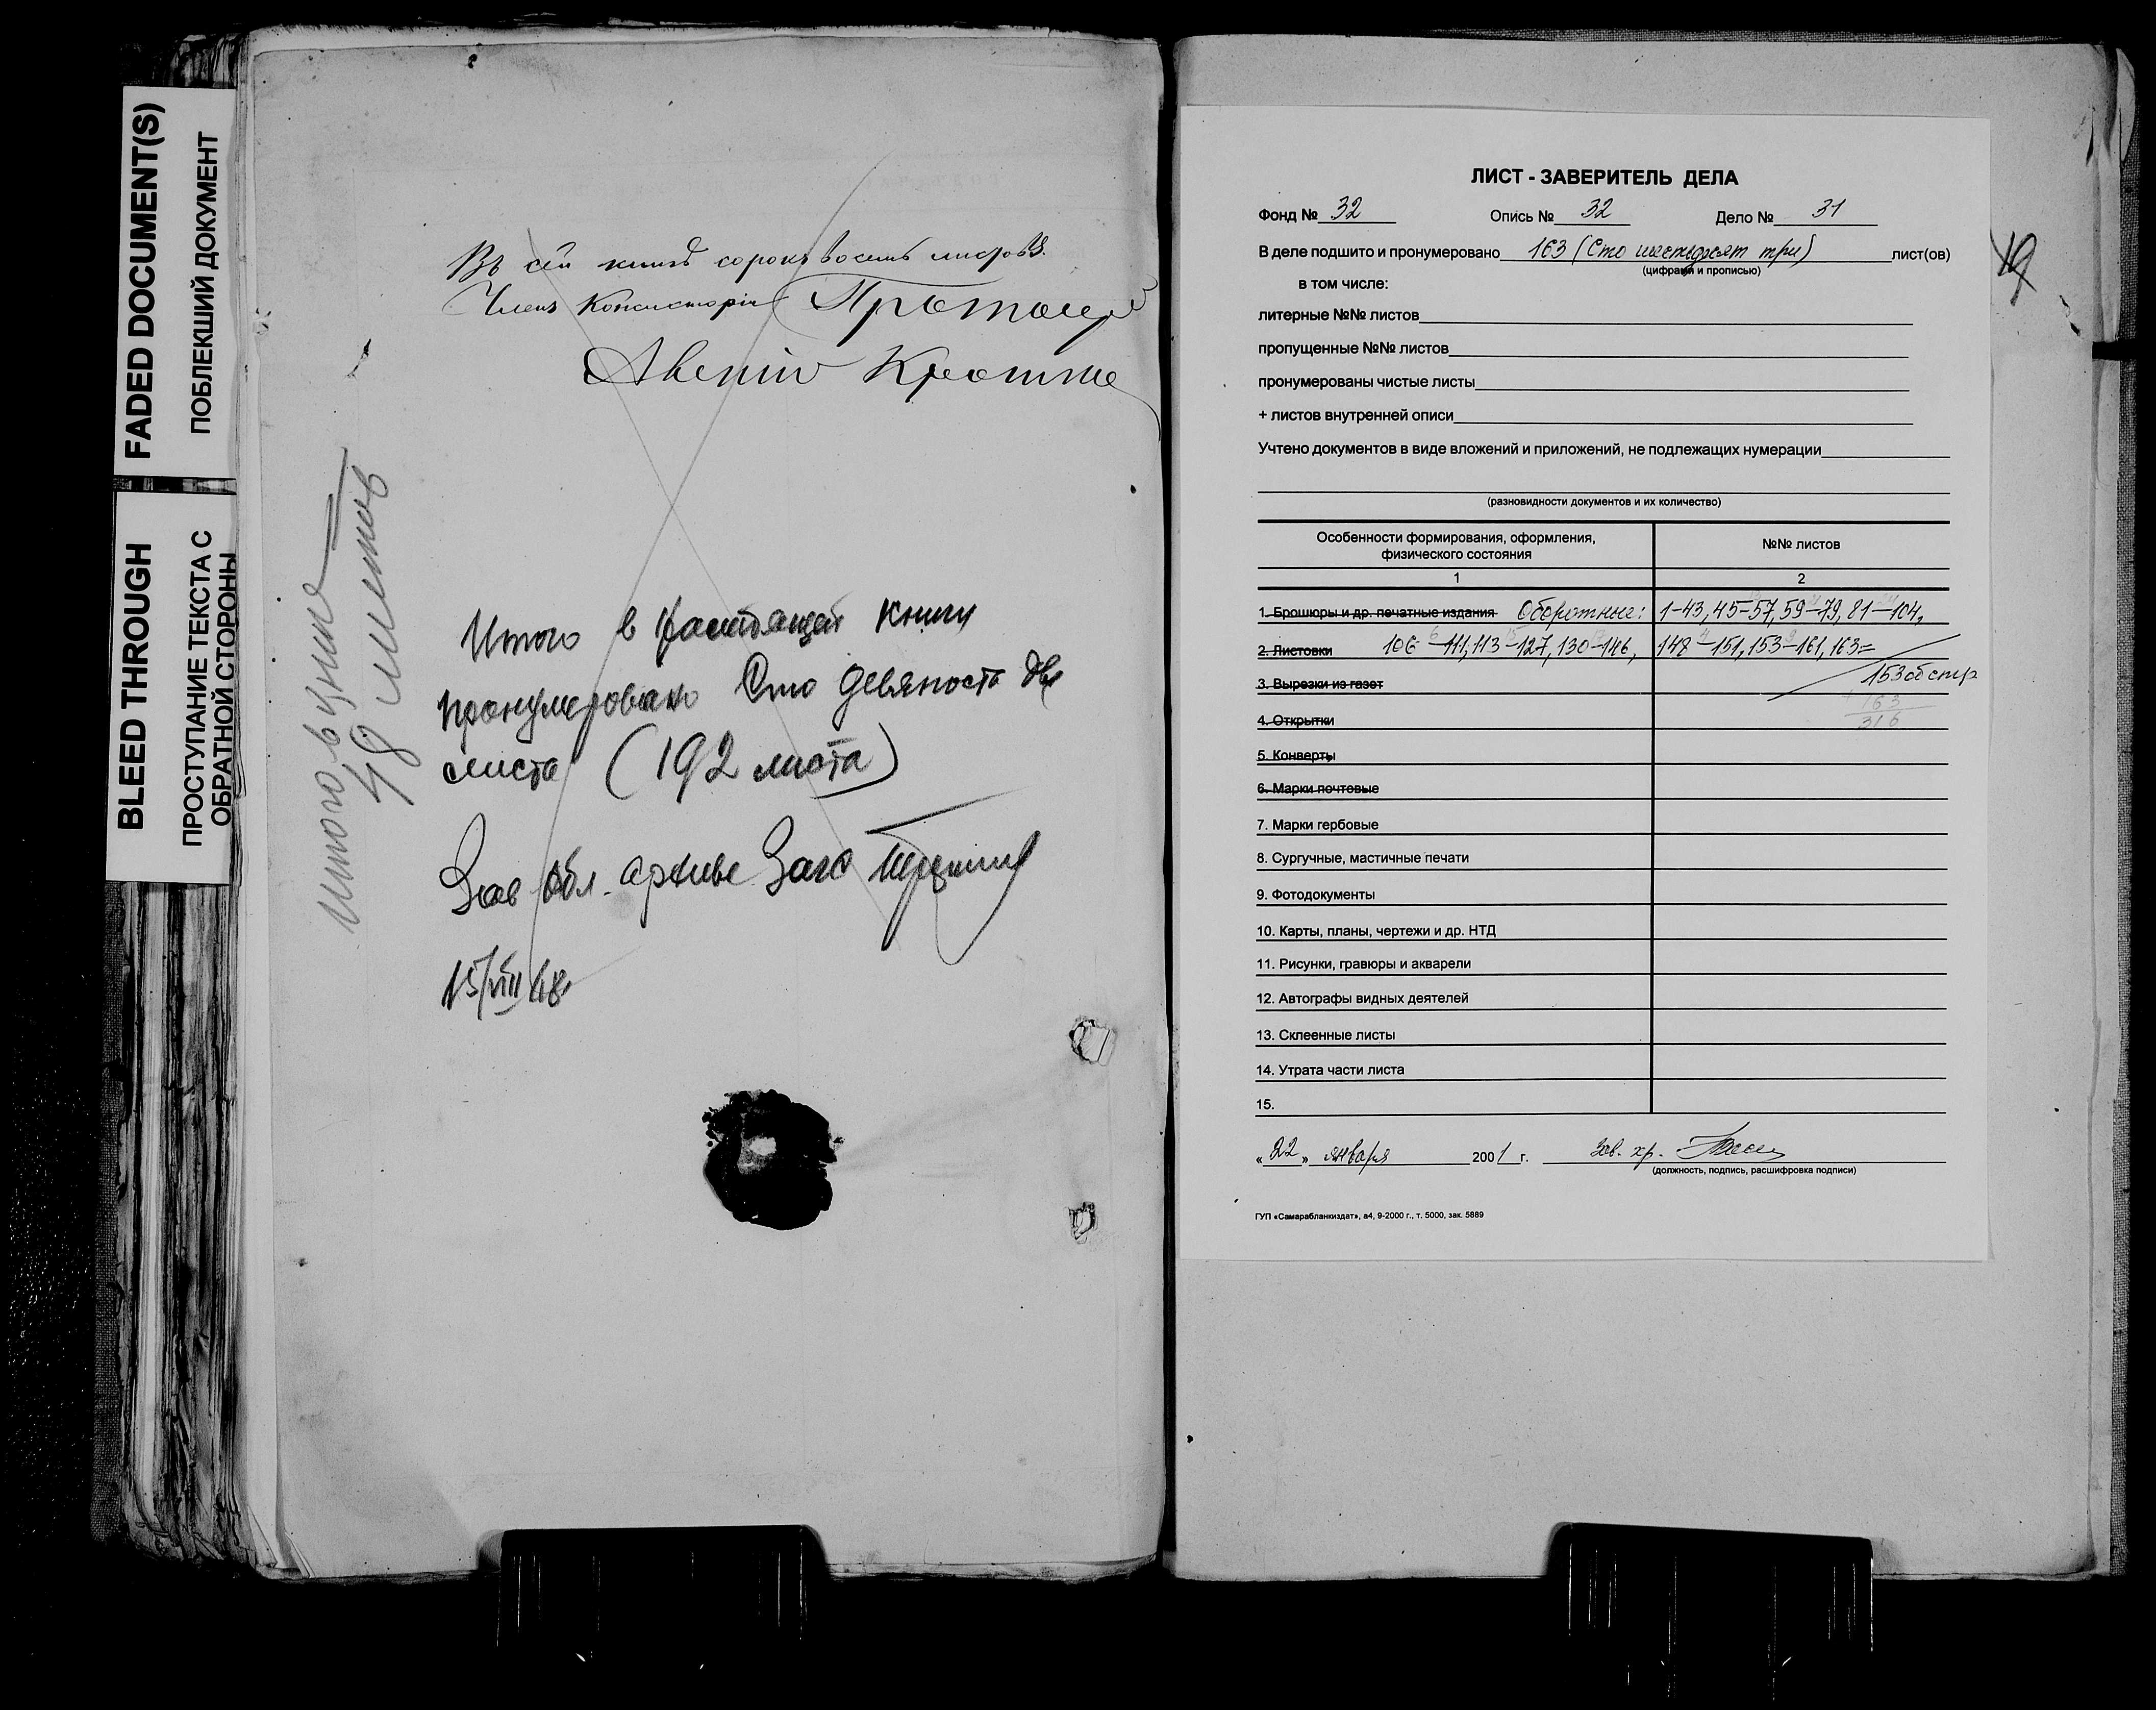 FADED DOCUMENT(S)
ПОБЛЕКШИЙ ДОКУМЕНТ
BLEED THROUGH
ПРОСТУПАНИЕ ТЕКСТА С
ОБРАТНОЙ СТОРОНЫ
Въ сей книгѣ сорокъ восемь листовъ.
Членъ Консисторіи Протоіерей
Итого в книге
48 листов
Итого в настоящей книги
пронумеровано Сто девяносто два
листа (192 листа)
Зав обл. архива
15/VIII 48.
ЛИСТ - ЗАВЕРИТЕЛЬ ДЕЛА
Фонд № 32 Опись № 32 Дело № 31
В деле подшито и пронумеровано 163 (Сто шестьдесят три) лист(ов)
(цифрами и прописью)
в том числе:
литерные №№ листов
пропущенные №№ листов
пронумерованы чистые листы
+ листов внутренней описи
Учтено документов в виде вложений и приложений, не подлежащих нумерации
(разновидности документов и их количество)
Особенности формирования, оформления,
физического состояния
№№ листов
1 2
1. Брошюры и др. печатные издания Оборотные: 1-43, 45-57, 59-79, 81-104,
2. Листовки 106-111, 113-127, 130-146, 148-151, 153-161, 163=
3. Вырезки из газет 153 об стр
163
4. Открытки 316
5. Конверты
6. Марки почтовые
7. Марки гербовые
8. Сургучные, мастичные печати
9. Фотодокументы
10. Карты, планы, чертежи и др. НТД
11. Рисунки, гравюры и акварели
12. Автографы видных деятелей
13. Склеенные листы
14. Утрата части листа
15.
«22» января 2001 г. Зав. хр.
(должность, подпись, расшифровка подписи)
ГУП «Самарабланкиздат», а4, 9-2000 г., т. 5000, зак. 5889